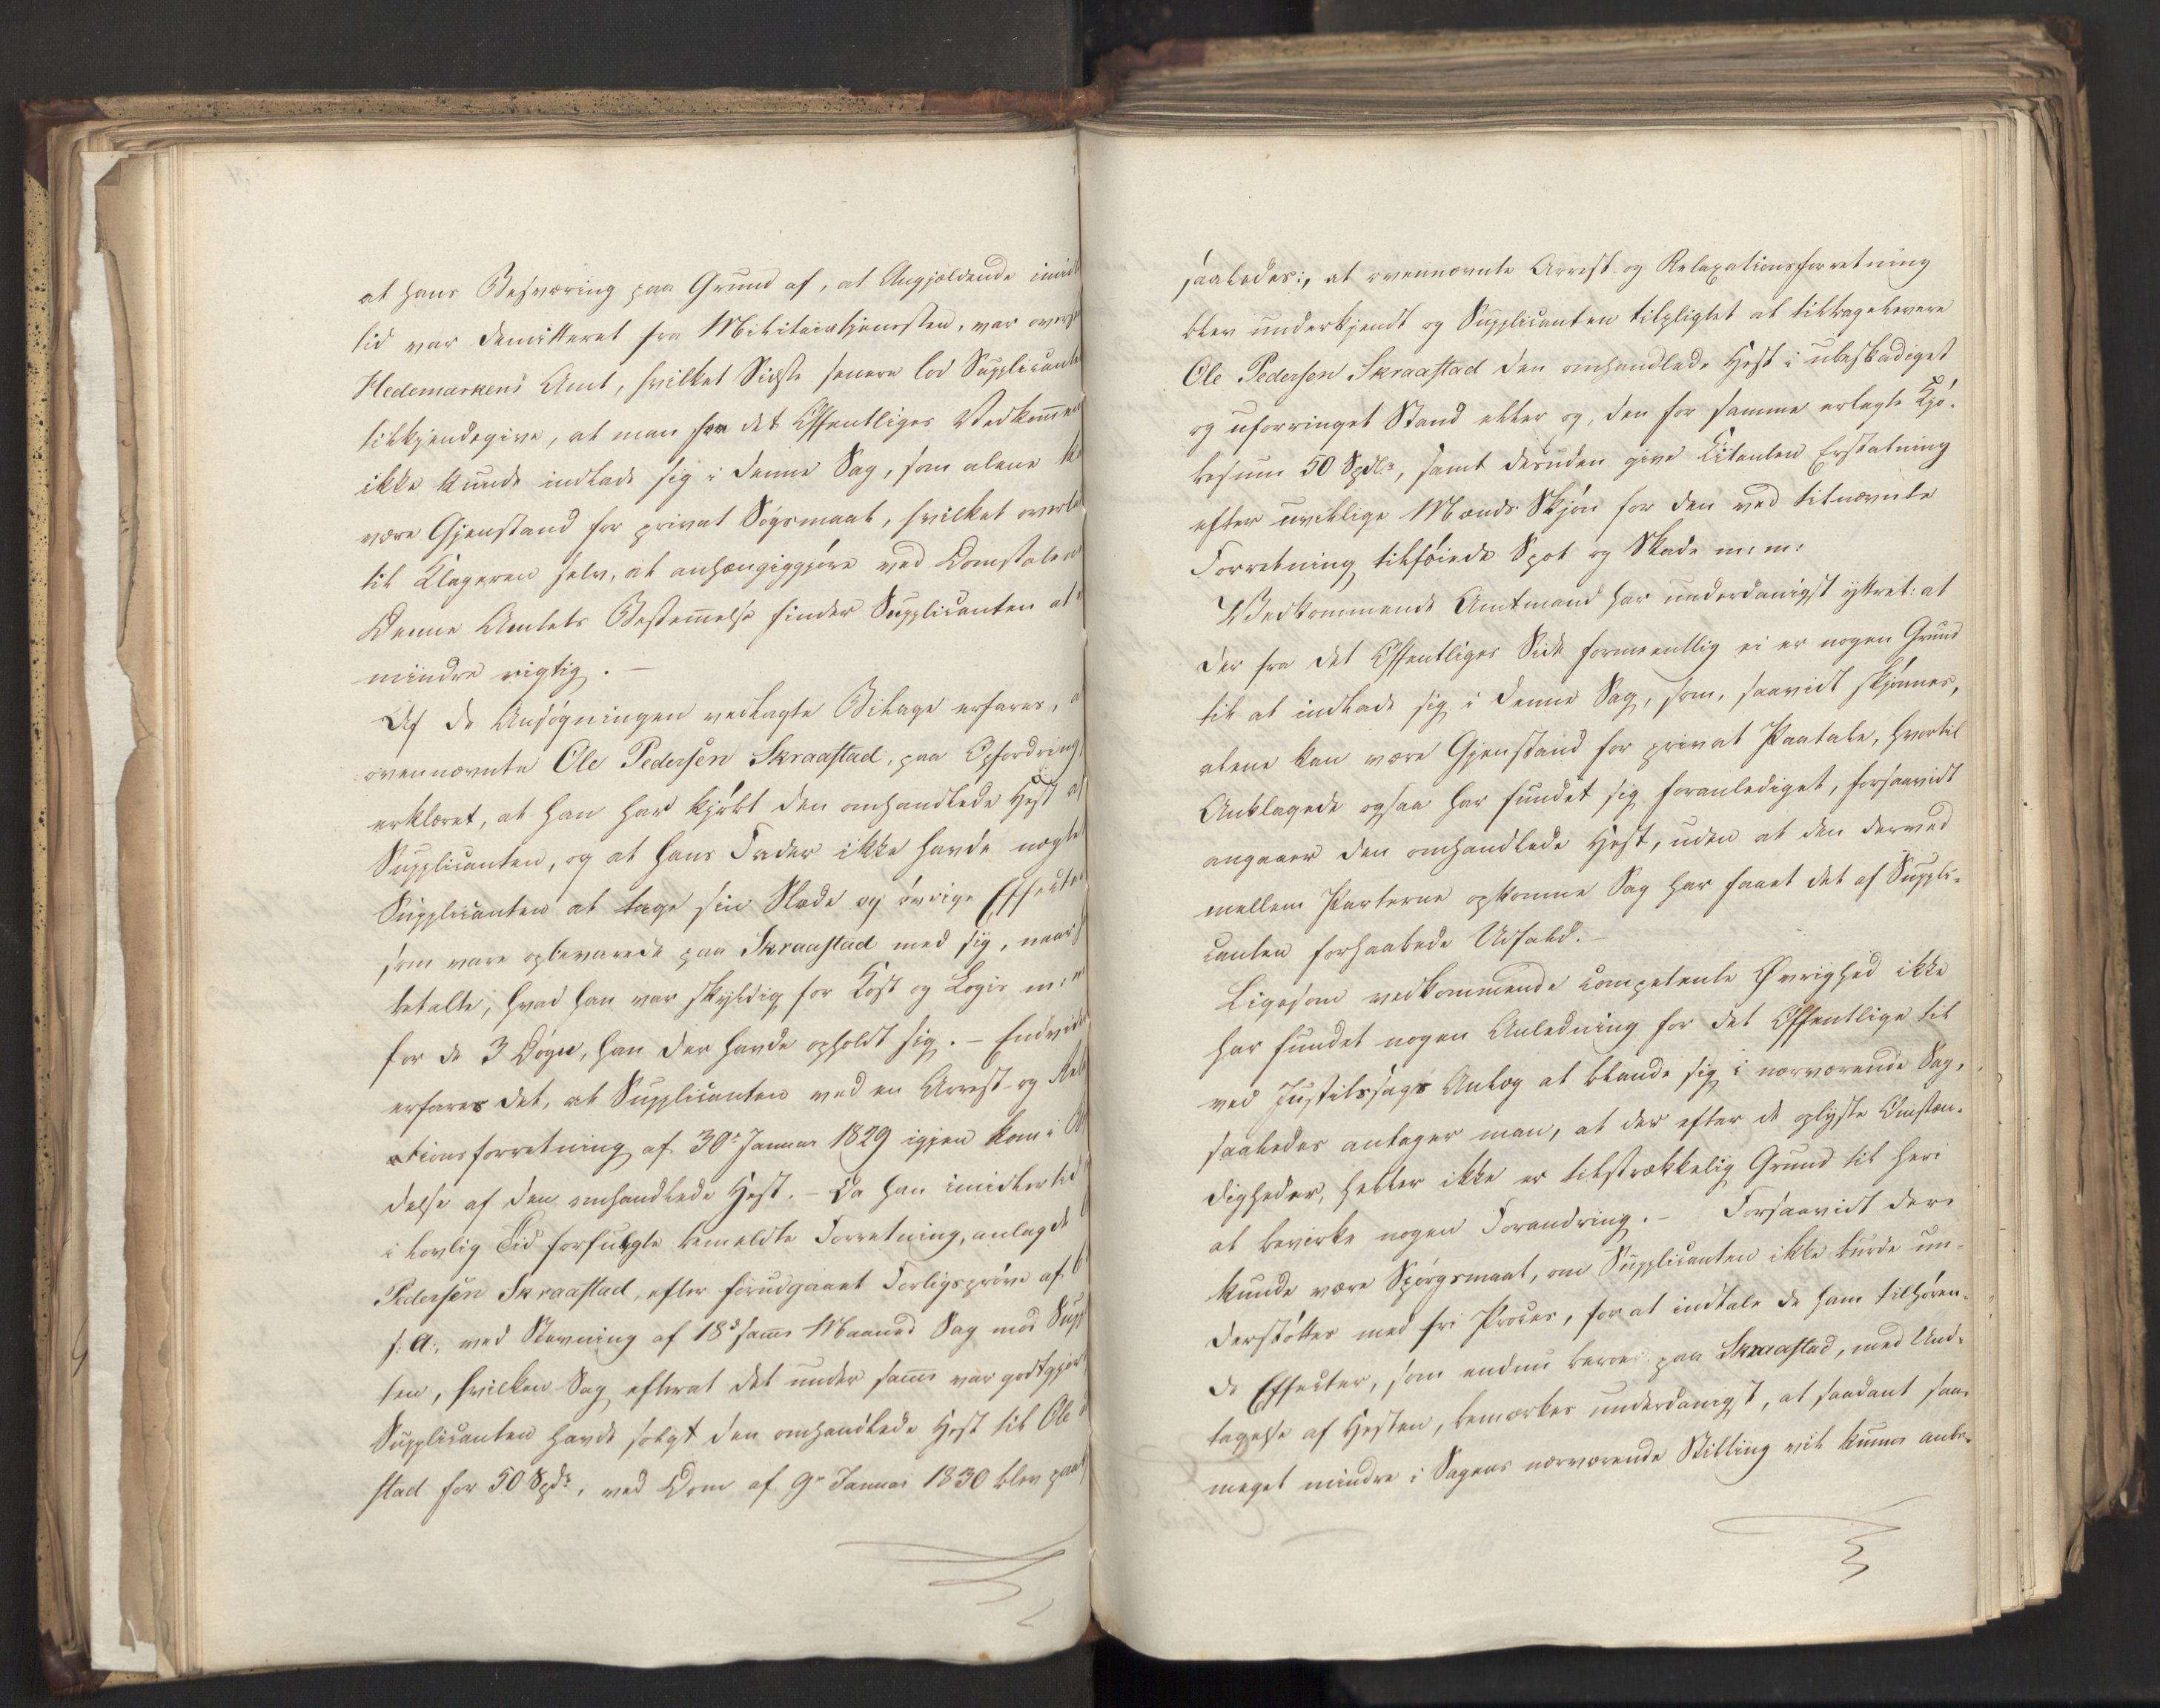 at hans Besværing paa Grund af, at Angjældende imid
tid var demitteret fra Militairtjenesten, var overs
Hedemarkens Amt, hvilket Sidste senere lod Supplicante
tilkjendegive, at man fra det Offentliges Vedkomme
ikke kunde indlade sig i denne Sag, som alene k
være Gjenstand for privat Søgsmaal, hvilket overlo
til Klageren selv, at anhængiggjøre ved Domstolen
Denne Amtets Bestemmelse finder Supplicanten at
mindre rigtig. —
Af de Ansøgningen vedlagte Bilage erfares, a
ovennævnte Ole Pedersen Skraastad, paa Opfordring,
erklæret, at han har kjøbt den omhandlede Hest af
Supplicanten, og at hans Fader ikke havde nægtet
Supplicanten at tage sin Slæde og øvrige Effecter
som vare opbevarede paa Skraastad med sig, naar h
betalte, hvad han var skyldig for Kost og Logis m: m
for de 3 Døgn, han der havde opholdt sig. — Endvide
erfares det, at Supplicanten ved en Arrest- og Rel
ationsforretning af 30te Januar 1829 igjen kom i Be
delse af den omhandlede Hest. — Da han imidlertid
i lovlig Tid forfulgte bemeldte Forretning, anlagde
Pedersen Skraastad, efter forudgaaet Forligsprøve af
s: A:, ved Stevning af 18de samme Maaned Sag mod Supp
ten, hvilken Sag, efterat det under samme var godtgjort
Supplicanten havde solgt den omhandlede Hest til Ole
stad for 50 Spdr, ved Dom af 9de Januar 1830 blev paak
saaledes:, at ovennævnte Arrest- og Relaxationsforretning
blev underkjendt og Supplicanten tilpligtet at tilbagelevere
Ole Pedersen Skraastad den omhandlede Hest i ubeskadiget
og uforringet Stand eller og, den for samme erlagte Kjø-
besum 50 Spdlr, samt desuden give Citanten Erstatning
efter uvillige Mænds Skjøn for den ved titnævnte
Forretning tilføiede Spot og Skade m: m:
Vedkommende Amtmand har underdanigst yttret: at
der fra det Offentliges Side formeentlig ei er nogen Grund
til at indlade sig i denne Sag, som, saavidt skjønnes,
alene kan være Gjenstand for privat Paatale, hvortil
Anklagede ogsaa har fundet sig foranlediget, forsaavidt
angaaer den omhandlede Hest, uden at den derved
mellem Parterne opkomne Sag har faaet det af Suppli-
canten forhaabede Udfald. —
Ligesom vedkommende competente Øvrighed ikke
har fundet nogen Anledning for det Offentlige til
ved Justitssags Anlæg at blande sig i nærværende Sag,
saaledes antager man, at der efter de oplyste Omstæn-
digheder, heller ikke er tilstrækkelig Grund til heri
at bevirke nogen Forandring. — Forsaavidt der
kunde være Spørgsmaal, om Supplicanten ikke burde un-
derstøttes med fri Proces, for at indtale de ham tilhøren-
de Effecter, som endnu beroe paa Skraastad, med Und-
tagelse af Hesten, bemærkes underdanigst, at saadant saa-
meget mindre i Sagens nærværende Stilling vil kunne anbe-